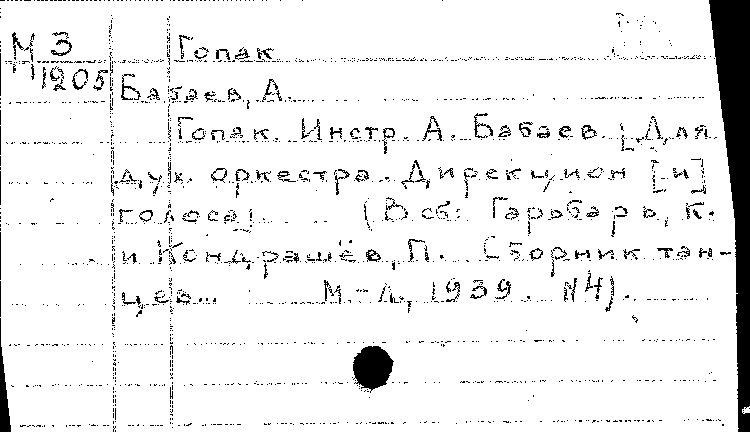 М 3 Гопак
1205
Бабаев, А.
Гопак. Инстр. А. Бабаев. [Для
дух. оркестра. Дирекцион [и]
голоса] (В сб: Гарьбарь, К.
и Кондрашёв, П. Сборник тан-
цев... М.-Л., 1939. N4).